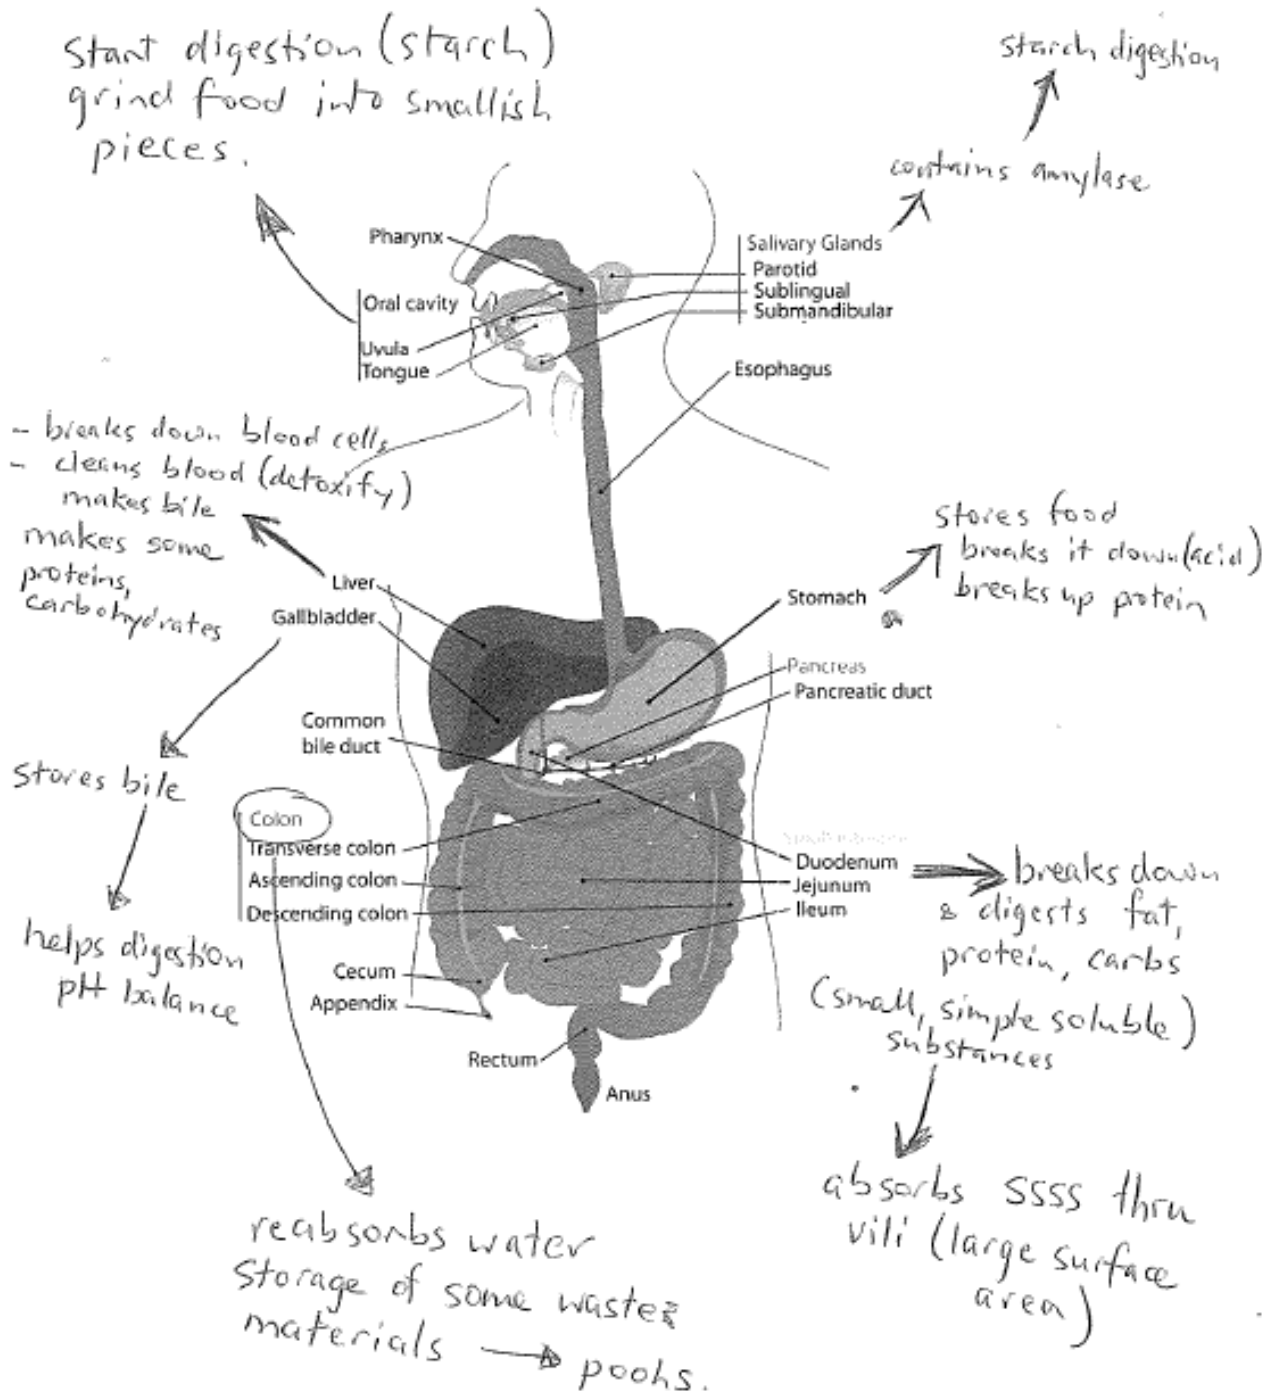 start digestion (starch)
grind food into smallish
pieces.
starch digestion
contains amylase
Pharynx
Oral cavity
Uvula
Tongue
Salivary Glands
Parotid
Sublingual
Submandibular
Esophagus
- breaks down blood cells
- cleans blood (detoxify)
makes bile
makes some
proteins,
carbohydrates
Liver
Gallbladder
stores food
breaks it down (acid)
breaks up protein
Stomach
Pancreas
Pancreatic duct
Common
bile duct
stores bile
helps digestion
pH balance
Colon
Transverse colon
Ascending colon
Descending colon
Cecum
Appendix
Rectum
Anus
Small intestine
Duodenum
Jejunum
Ileum
breaks down
& digests fat,
protein, carbs
(small, simple soluble)
substances
absorbs SSSS thru
vili (large surface
area)
reabsorbs water
storage of some waste
materials
poohs.